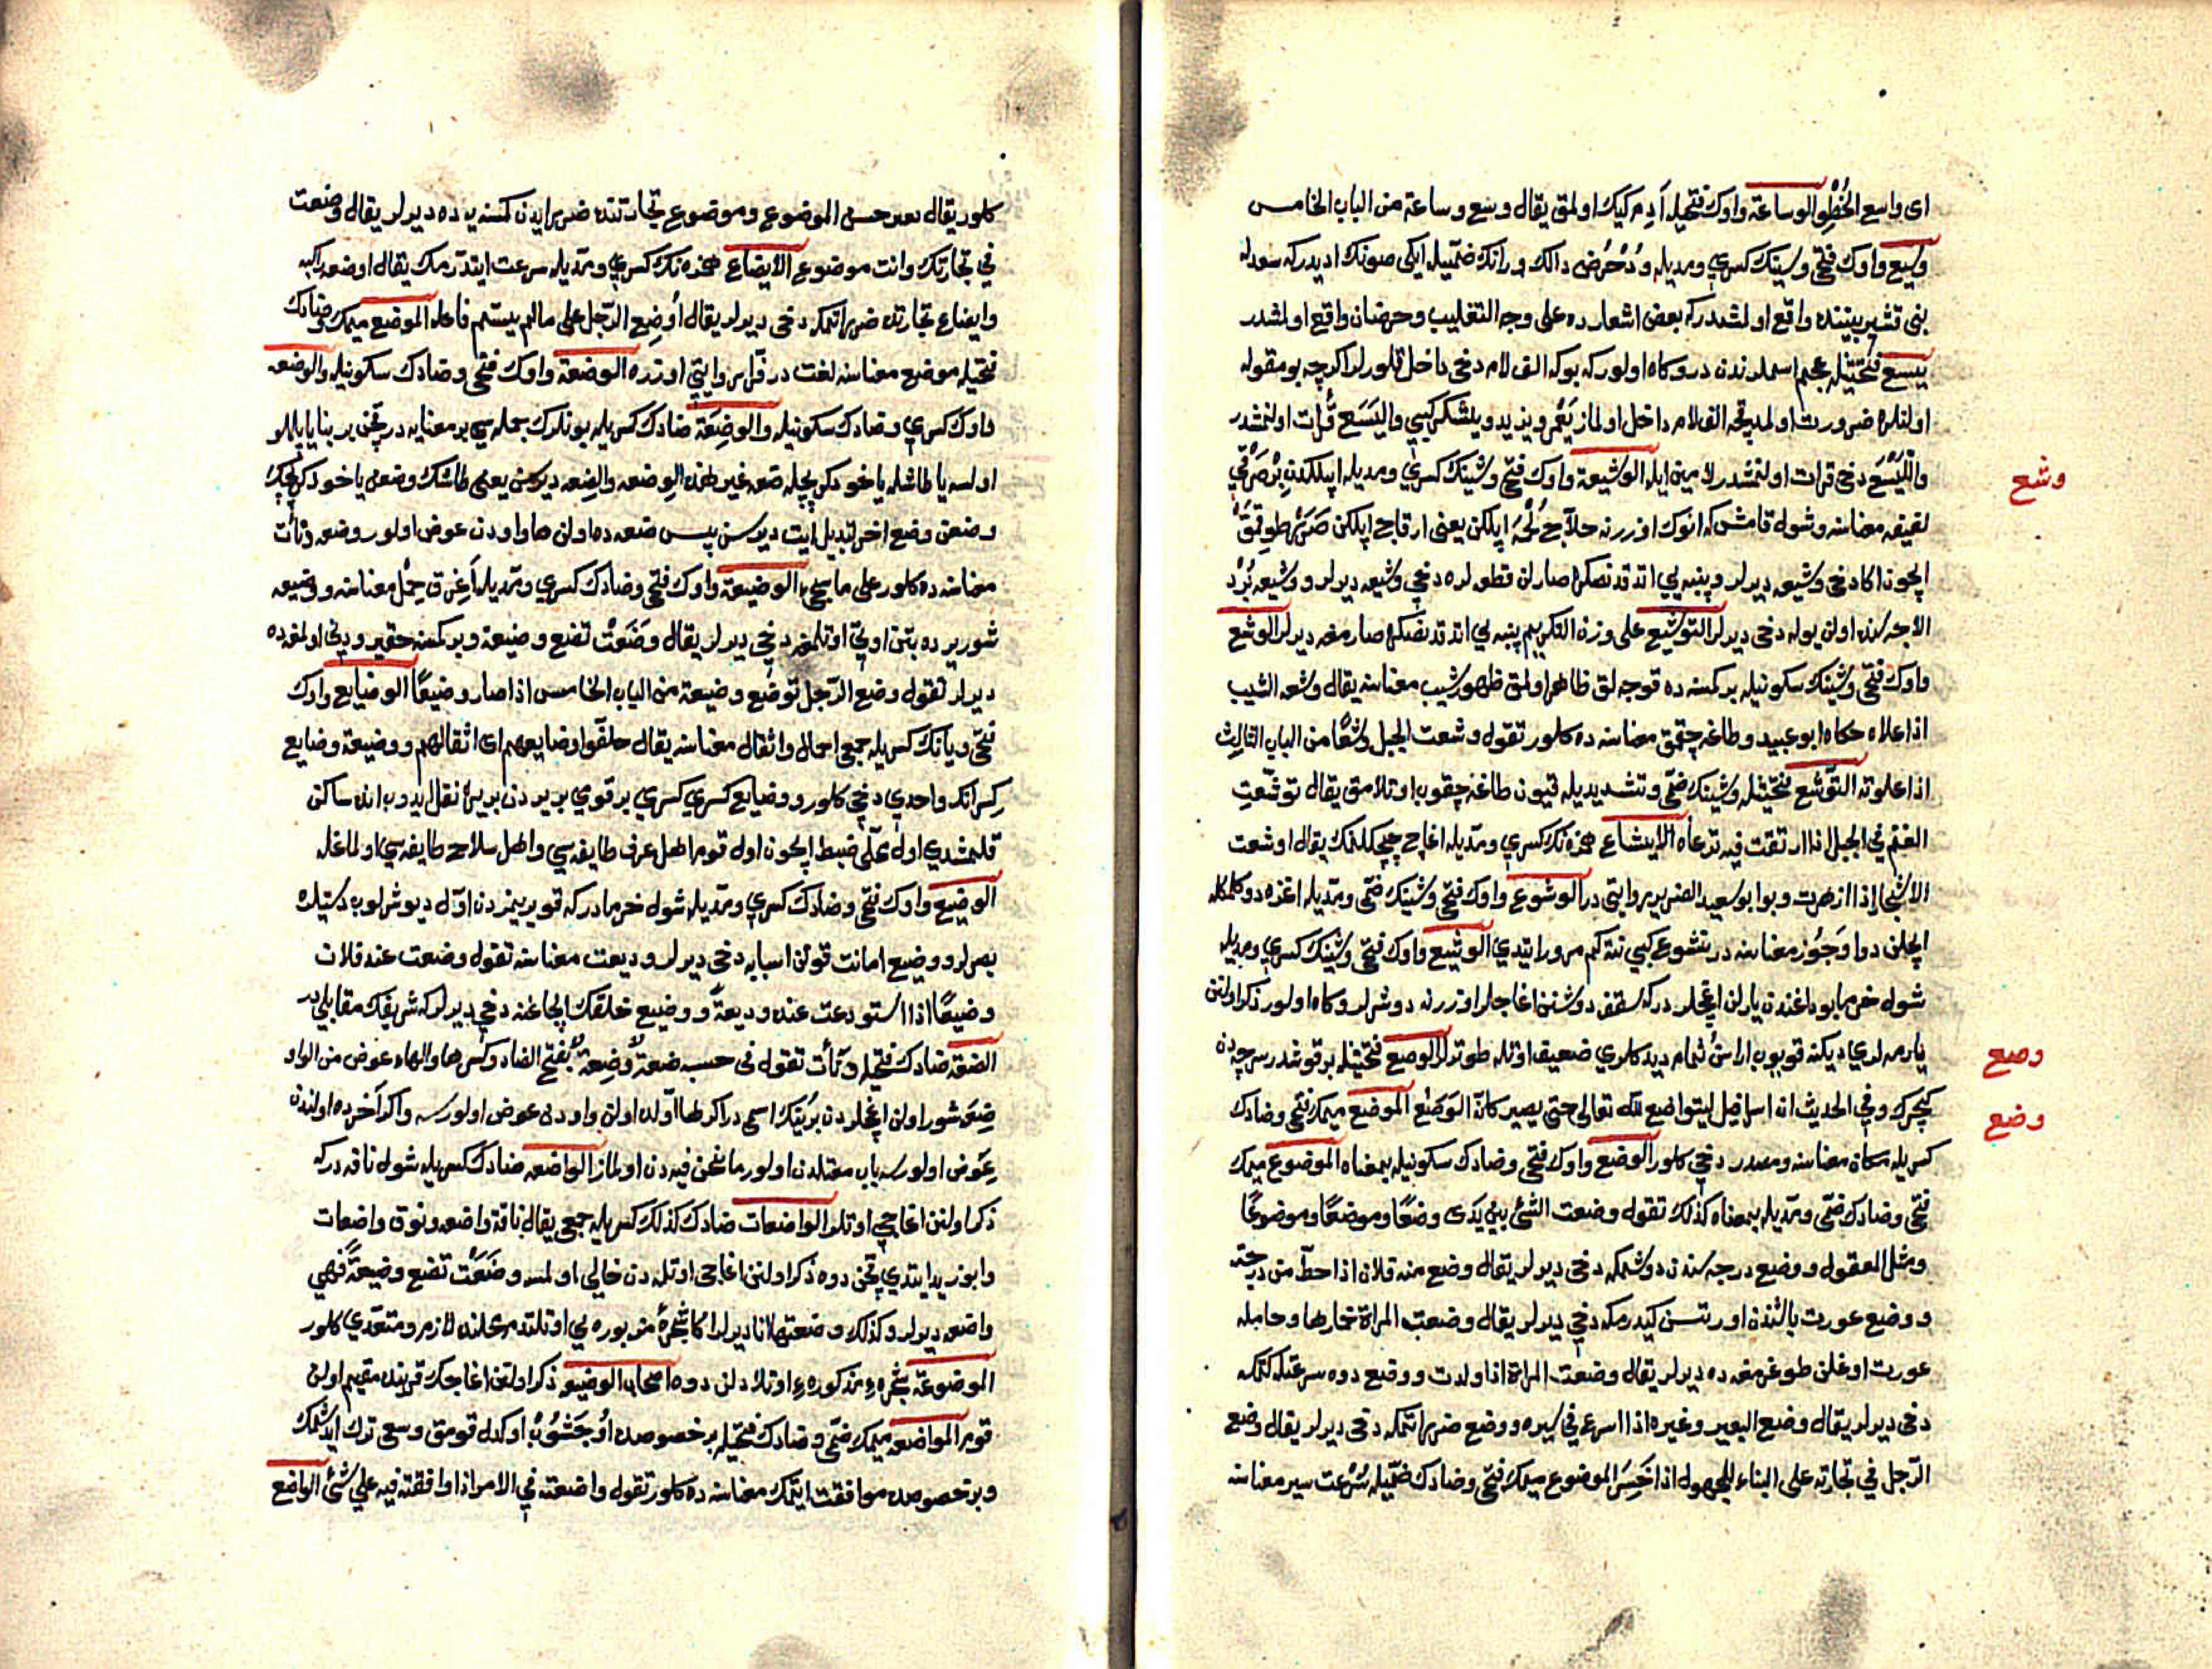 اى واسع الخُطِو الوساعة واوك فتحيله آدم كيك اولمق يقال وسع وساعة من الباب الخامس
وسيع واوك فتحى وسينك كسرى ومديله ودُحْرُض دالك ورانك ضميله ايكى صونك اديدركه سعدله
بنى قشير بيننده واقع اولمشدركه بعض اشعارده على وجه التغليب وحرضان واقع اولمشدر
يسع فتحتيله عجم اسملرندن دروكاه اولوركه بوكه الف لام دخى داخل قلورلر اكرچه بو مقوله
اولنلره ضرورت اولمدقجه الف لام داخل اولماز يَعْمُر ويزيد ويشكر كبى واليَسَع قرات اولنمشدر
واللَّيْسَع دخى قرات اولنمشدر لامين ايله الوشيعة واوك فتحى وشينك كسرى ومديله ايپلكدن بر صَرْغى
وشع
لفيفه معناسنه وشوله قامش كه انوك اوزرنه حلاج ايپلكن يعنى ارقاج ايپلكن صَرَر طوقمق
ايچون اكا دخى وشيعه ديرلر وپنبه يى اتدقدنصكره صارلن قطولره دخى وشيعه ديرلر ووشيعه بُرْد
الاجه سنده اولن يوله دخى ديرلر التوشيع على وزن التكريم پنبه يى اتدقدنصكره صارمغه ديرلر الوشع
واوك فتحى وشينك سكونيله بر كمسنه ده قوجه لق ظاهر اولمق ظهور شيب معناسنه يقال وشعه الشيب
اذا علاه حكاه ابو عبيد وطاغه چقمق معناسنه ده كلور تقول وشعت الجبل وشعًا من الباب الثالث
اذا علوته التوشع فتحتيله وشينك ضمى وتشديديله قيون طاغه چقوب اوتلامق يقال توشعت
الغنم فى الجبل اذا ارتقت فيه ترعاه الايشاع همزه نك كسرى ومديله اغاج چچكلنمك يقال اوشعت
الاشجار اذا ازهرت وبو ابو سعيد الضرير روايتى در الوشوع واوك فتحى وشينك ضمى ومديله اغزه دوكلمكله
ايچلن دوا وَجُوْر معناسنه در نشوع كبى نته كم مرور ايتدى الوشيع واوك فتحى وشينك كسرى ومديله
شوله خرما بوداغندن يارلن اغجلر دركه سقف دوشنن اغاجلر اوزرنه دوشرلر وكاه اولور ذكر اولنن
يارمه لرى ديكنه قويوب اراسن ثمام ديدكلرى ضعيف اوتله طوتدلر الوصع فتحتيله بر قوشدر سرچه دن
وصع
كيچرك وفى الحديث ان اسرافيل ليتواضع لله تعالى حتى يصير كانه الوَصَع الموضع ميمك فتحى وضادك
وضع
كسريله مكان معناسنه ومصدر دخى كلور الوضع واوك فتحى وضادك سكونيله بمعناه الموضوع ميمك
فتحى وضادك ضمى ومديله بمعناه كذلك تقول وضعت الشئ بين يدى وضعًا وموضعًا وموضوعًا
ومثل المعقول ووضع درجه سندن دوشمكه دخى ديرلر يقال وضع منه فلان اذا حط من درجته
ووضع عورت باشندن اورتسن كيدرمكه دخى ديرلر يقال وضعت المراة خمارها وحامله
عورت اوغلن طوغرمغه ده ديرلر يقال وضعت المراة اذا ولدت ووضع دوه سرعتله كتمكه
دخى ديرلر يقال وضع البعير وغيره اذا اسرع فى سيره ووضع ضرر اتمكه دخى ديرلر يقال وضع
الرجل فى تجارته على البناء للمجهول اذا خَسِرَ الموضوع ميمك فتحى وضادك ضميله سُرْعت سير معناسنه
كلور يقال بعير حسن الموضوع وموضوع تجارتنده ضرر ايدن كمسنه يه ده ديرلر يقال وضعت
فى تجارتك وانت موضوع الايضاع همزه نك كسرى ومديله سرعت ايتدرمك يقال اوضعه راكبه
وايضاع تجارتده ضرر اتمكه دخى ديرلر يقال أوضِع الرجل على مالم يسم فاعله الموضع ميمك وضادك
فتحيله موضع معناسنه لغت در فرا روايتى اوزره الوضعة واوك فتحى وضادك سكونيله والوضعه
واوك كسرى وضادك سكونيله والوضِعَة ضادك كسريله بونلرك جمله سى بر معنايه در قچن بر بنا يا
اولسه يا طاشله ياخود كرپچله ضعه غير هذه الوضعه والضعه ديرسن يعنى طاشك وضعن ياخود كرپجك
وضعن وضع اخر تبديل ايت ديرسن پس ضعه ده اولن ها واودن عوض اولور وضعه دنائت
معناسنه ده كلور على ما سيجئ الوضيعة واوك فتحى وضادك كسرى ومديله آغرق حِمْل معناسنه ووضيعه
شور يرده بتن اوتى اوتلامغه دخى ديرلر يقال وضَعَتْ تضع وضيعة وبر كمسنه حقير ودنى اولمغه ده
ديرلر تقول وضع الرجل توضع وضيعة من الباب الخامس اذا صار وضيعًا الوضايع واوك
فتحى ويانك كسريله جمعى احمال واثقال معناسنه يقال خلفوا وضايعهم اى اثقالهم ووضيعة وضايع
واحدى دخى كلور ووضايع كسرى كسرى بر قومى بر يردن بر يره نقل ايدوب انده ساكن
قلمشدى اول ضبط ايچون اول قوم اهل عرف طايفه سى واهل سلاح طايفه سى اولماغله
الوضيع واوك فتحى وضادك كسرى ومديله شوله خرمادركه قورينمزدن اول ديوشرلوب دستيلره
بصرلر ووضيع امانت قونن اسبابه دخى ديرلر وديعت معناسنه تقول وضعت عند فلان
وضيعًا اذا استودعت عنده وديعة ووضيع خلقك الچاغنه دخى ديرلر كه شريفك مقابلى در
الضعة ضادك فتحيله دنائت تقول فى حسبه ضعة وضِعة بفتح الضاد وكسرها والهاء عوض من الواو
ضِعَه شور اولن اغجلردن بريّنك اسمى در اكر ها اوّلده اولن واودن عوض اولورسه واكر آخرده اولندن
عوض اولورسه باب معتلدن اولور ما نحن فيه دن اولماز الواضعه ضادك كسريله شوله ناقه دركه
ذكر اولنن اغاجى اوتلر الواضعات ضادك كذلك كسريله جمعى يقال ناقة واضعه ونوق واضعات
وابو زيد ايتدى قچن دوه ذكر اولنن اغاجى اوتلدن خالى اولمسه وضَعَتْ تضع وضيعة فهى
واضعه ديرلر وكذلك وضعتها انا ديرلر اكا شجره مزبوره يى اوتلتدم محلنده لازم ومتعدى كلور
الموضوعة شجرهء مذكورهء اوتلادلن دوه اصحاب الوضيعه ذكر اولنن اغاجك قربنده مقيم اولن
قوم المواضعه ميمك ضمى وضادك فتحيله بر خصوصده اوجشوب اوكدل قومق وسعى ترك ايدشمك
وبر خصوصده موافقت ايتمك معناسنه ده كلور تقول واضعته فى الامر اذا وافقته فيه على شئ الواضع